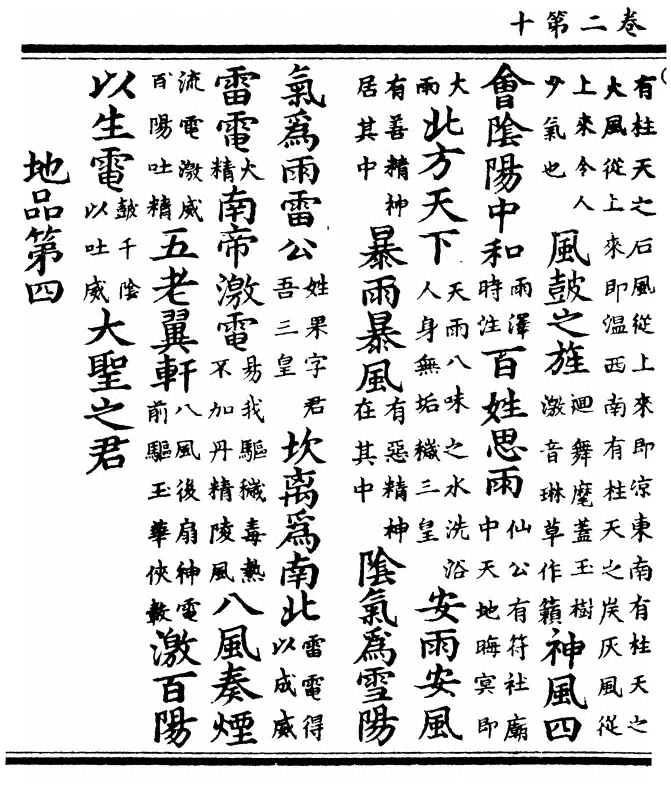 卷二第十
有柱天之石風從上來即涼東南有柱天之
火風從上來即温西南有柱天之炭灰風從
上來今人風鼓之旌迴舞麾蓋玉樹神風四
少氣也激音琳草作籟
會陰陽中和雨澤時注百姓思雨仙公有符社廟中天地晦冥即
大雨北方天下天雨八味之水洗浴人身無垢穢三皇安雨安風
有善精神居其中暴雨暴風有惡精神在其中陰氣爲雪陽
氣爲雨雷公姓果字君吾三皇坎离爲南北雷電得以成威
雷電大精南帝激電易我驅穢毒熱不加丹精陵風八風奏煙
流電激威百陽吐精五老翼軒八風後扇神電前驅玉華俠轂激百陽
以生電鼓千陰以吐威大聖之君
地品第四